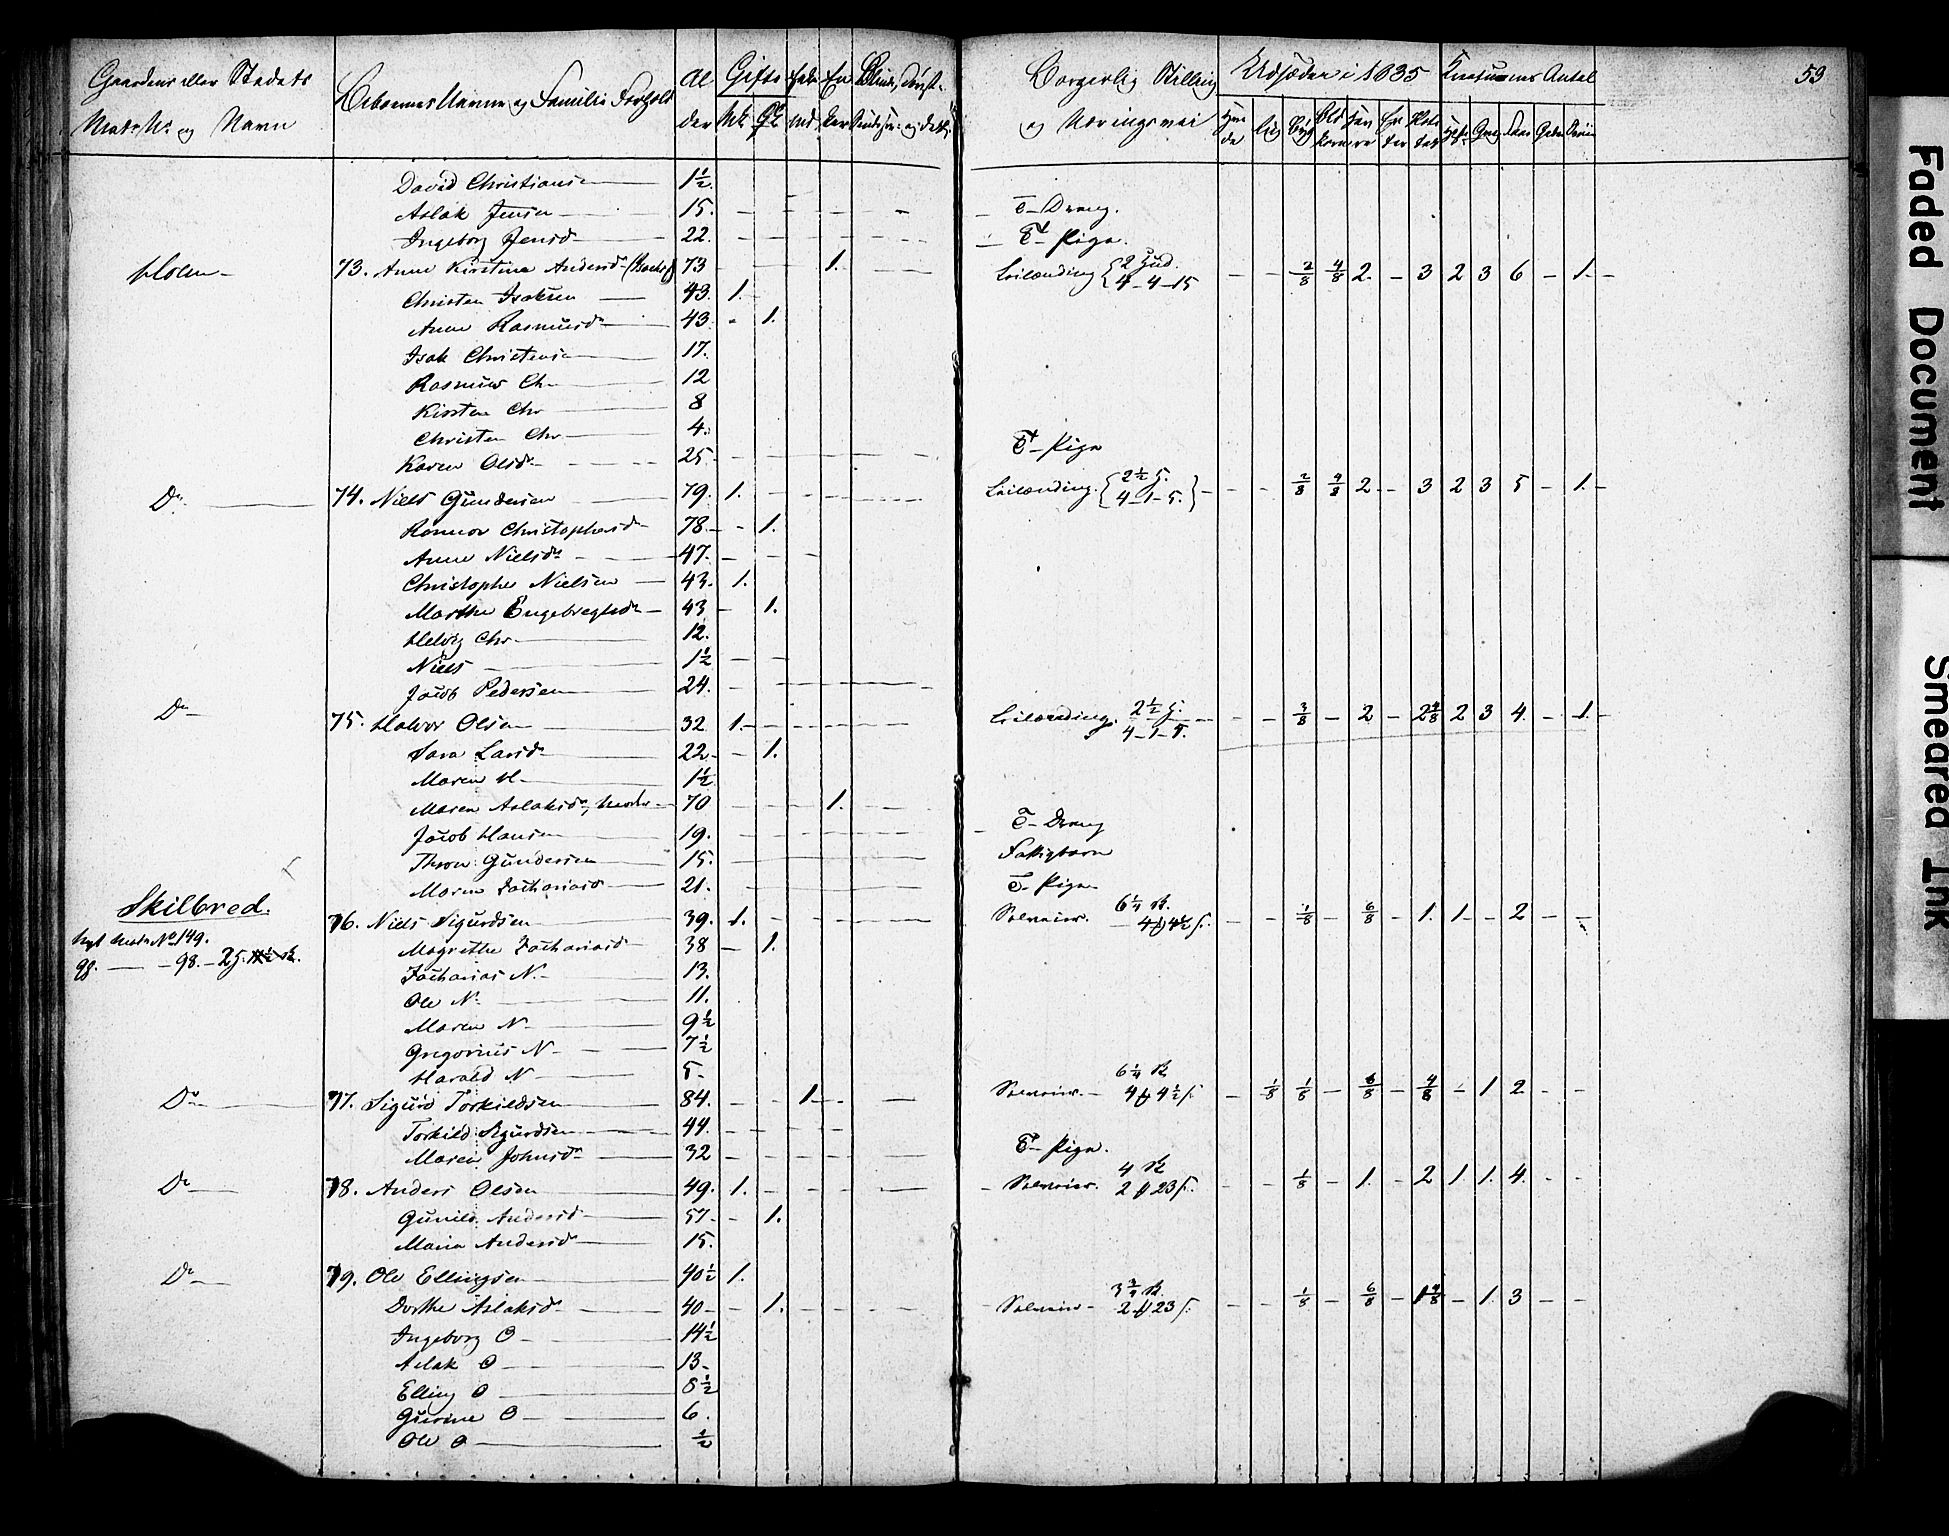 Gaardens eller Stedets Matr No og Navn | Beboernes Navne og Familie Forhold | Alder | Gifte Mk Qk | Enkemd | Enker | Borgerlig Stilling og Næringsvei | Udsæden i 1835 | Kreaturenes Antal | 53
David Christians — 1½
Aslak Jensen — 15. — T– Dreng.
Ingeborg Jensd — 22. — T– Pige.
Holen — 73. Anne Kirstine Andersd — 73 — 1. — Leilænding {2 Hud. 4–4–15 — 2/8 4/8 2. – 3 2 3 6 – 1. –
Christen Isaksen — 43. 1.
Anne Rasmusd — 43 - 1.
Isak Christens — 17.
Rasmus Ch — 12
Kirsten Chr — 8
Christen Chr — 4.
Karen Olsd — 25 — T– Pige
Do — 74. Niels Gundersen — 79. 1. — Leilænding. {2½ 4–1–5.} — 2/8 4/8 2 – 3 2 3 5 – 1. –
Ronnov Christophersd — 78 – 1.
Anne Nielsd — 47.
Christopher Nielsen — 43. 1.
Marthe Engebregtsd — 43 – 1.
Helvig Chr — 12.
Niels — 1½
Jacob Pedersen — 24.
Do — 75. Halvor Olsen — 32 1. — Leilænding. 2½ 4–1–5. — 3/8 – 2 – 2 4/8 2 3 4. – 1. –
Sara Larsd — 22 – 1.
Maren H — 1½
Maren Aslaksd, Moder — 70 — 1.
Jacob Hansen — 19. — T– Dreng
Thron Gundersen — 15. — Fattigbarn
Maren Zachariasd — 21. — T– Pige
Skilbred. — 76. Niels Sigurdsen — 39. 1. — Selveier. 6¼ 4 4½ — 1/8 – 6/8 – 1. 1 – 2 – –
Nyt Matr No 149.
98. — 98. – 25.
Magrethe Zachariasd — 38 – 1.
Zacharias N. — 13.
Ole N. — 11.
Maren N — 9½
Gregorius N — 7½
Harald N — 5
Do — 77. Sigurd Torkildsen — 84. — 1 — Selveier. 6¼ 4 4½ — 1/8 1/8 – 6/8 – 4/8 – 1 2 – –
Torkild Sigurdsen — 44.
Maren Johnsd — 32 — T– Pige.
Do — 78. Anders Olsen — 49. 1. — Selveier. 4 2 23 — 1/8 – 1. – 2 1 1. 4. – –
Gunild Andersd — 57 – 1.
Maria Andersd — 15.
Do — 79. Ole Ellingsen — 40½ 1.
Dorthe Aslaksd — 40 – 1. — Selveier – 3¾ 2 23 — 1/8 – 6/8 – 1 4/8 – 1. 3 – –
Ingeborg O — 14½
Aslak O — 13
Elling O — 8½
Gurine O — 6.
Ole O — ½
Faded Document
Smeared Ink